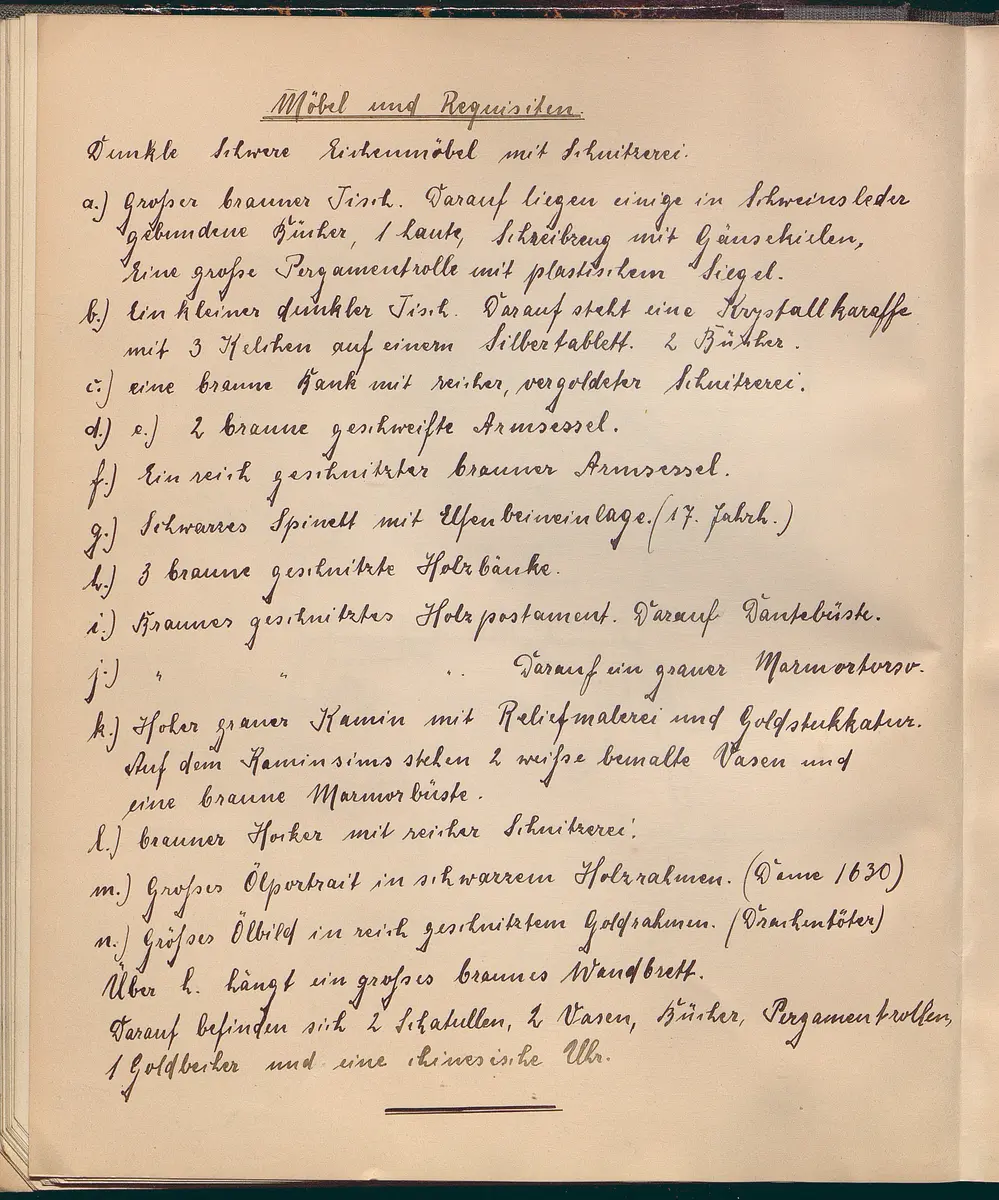 Möbel und Requisiten.
Dunkle Schwere Eichenmöbel mit Schnitzerei.
a.) Großer brauner Tisch. Darauf liegen einige in Schweinsleder
gebundene Bücher, 1 Laute, Schreibzeug mit Gänsekielen,
Eine große Pergamentrolle mit plastischem Siegel.
b.) Ein kleiner dunkler Tisch. Darauf steht eine Krystallkaraffe
mit 3 Kelchen auf einem Silbertablett. 2 Bücher.
c.) eine braune Bank mit reicher, vergoldeter Schnitzerei.
d.) e.) 2 braune geschweifte Armsessel.
f.) Ein reich geschnitzter brauner Armsessel.
g.) Schwarzes Spinett mit Elfenbeineinlage. (17. Jahrh.)
h.) 3 braune geschnitzte Holzbänke.
i.) Braunes geschnitztes Holzpostament. Darauf Dantebüste.
j.) " " " Darauf ein grauer Marmortorso.
k.) Hoher grauer Kamin mit Reliefmalerei und Goldstukkatur.
Auf dem Kaminsims stehen 2 weiße bemalte Vasen und
eine braune Marmorbüste.
l.) brauner Hocker mit reicher Schnitzerei.
m.) Großes Ölportrait in schwarzem Holzrahmen. (Dame 1630)
n.) Großes Ölbild in reich geschnitztem Goldrahmen. (Drachentöter)
Über h. hängt ein großes braunes Wandbrett.
Darauf befinden sich 2 Schatullen, 2 Vasen, Bücher, Pergamentrollen,
1 Goldbecher und eine chinesische Uhr.